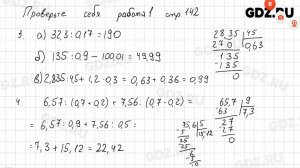 GDZ.RU
Проверьте себя работа 1 стр 142
3. а) 32,3 : 0,17 = 190
28,35 | 45
270 | 0,63
135
135
0
б) 135 : 0,9 - 100,01 = 49,99
в) 2,835 : 4,5 + 1,2 · 0,3 = 0,63 + 0,36 = 0,99
4. 6,57 : (0,7 + 0,2) + 7,56 : (0,7 - 0,2) =
65,7 | 9
63 | 7,3
27
27
0
= 6,57 : 0,9 + 7,56 : 0,5 =
75,6 | 5
5 | 15,12
25
= 7,3 + 15,12 = 22,42
GDZ.RU